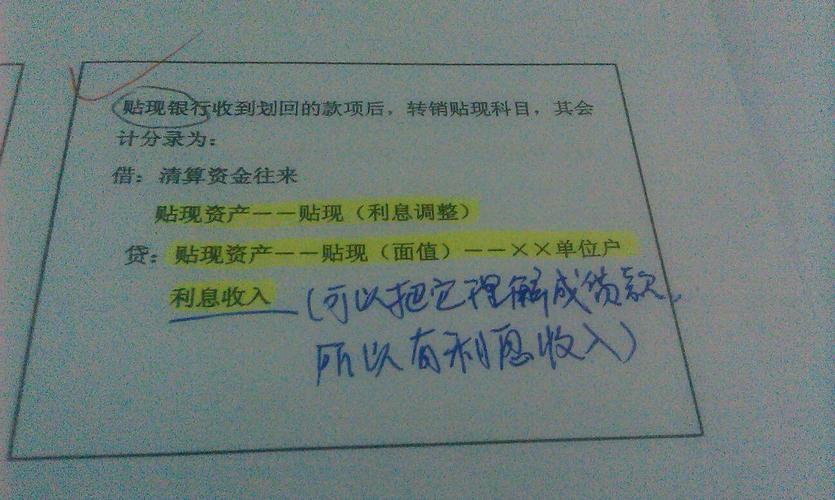 贴现银行收到划回的款项后，转销贴现科目，其会
计分录为：
借：清算资金往来
贴现资产——贴现（利息调整）
贷：贴现资产——贴现（面值）——××单位户
利息收入（可以把它理解成贷款，
所以有利息收入）